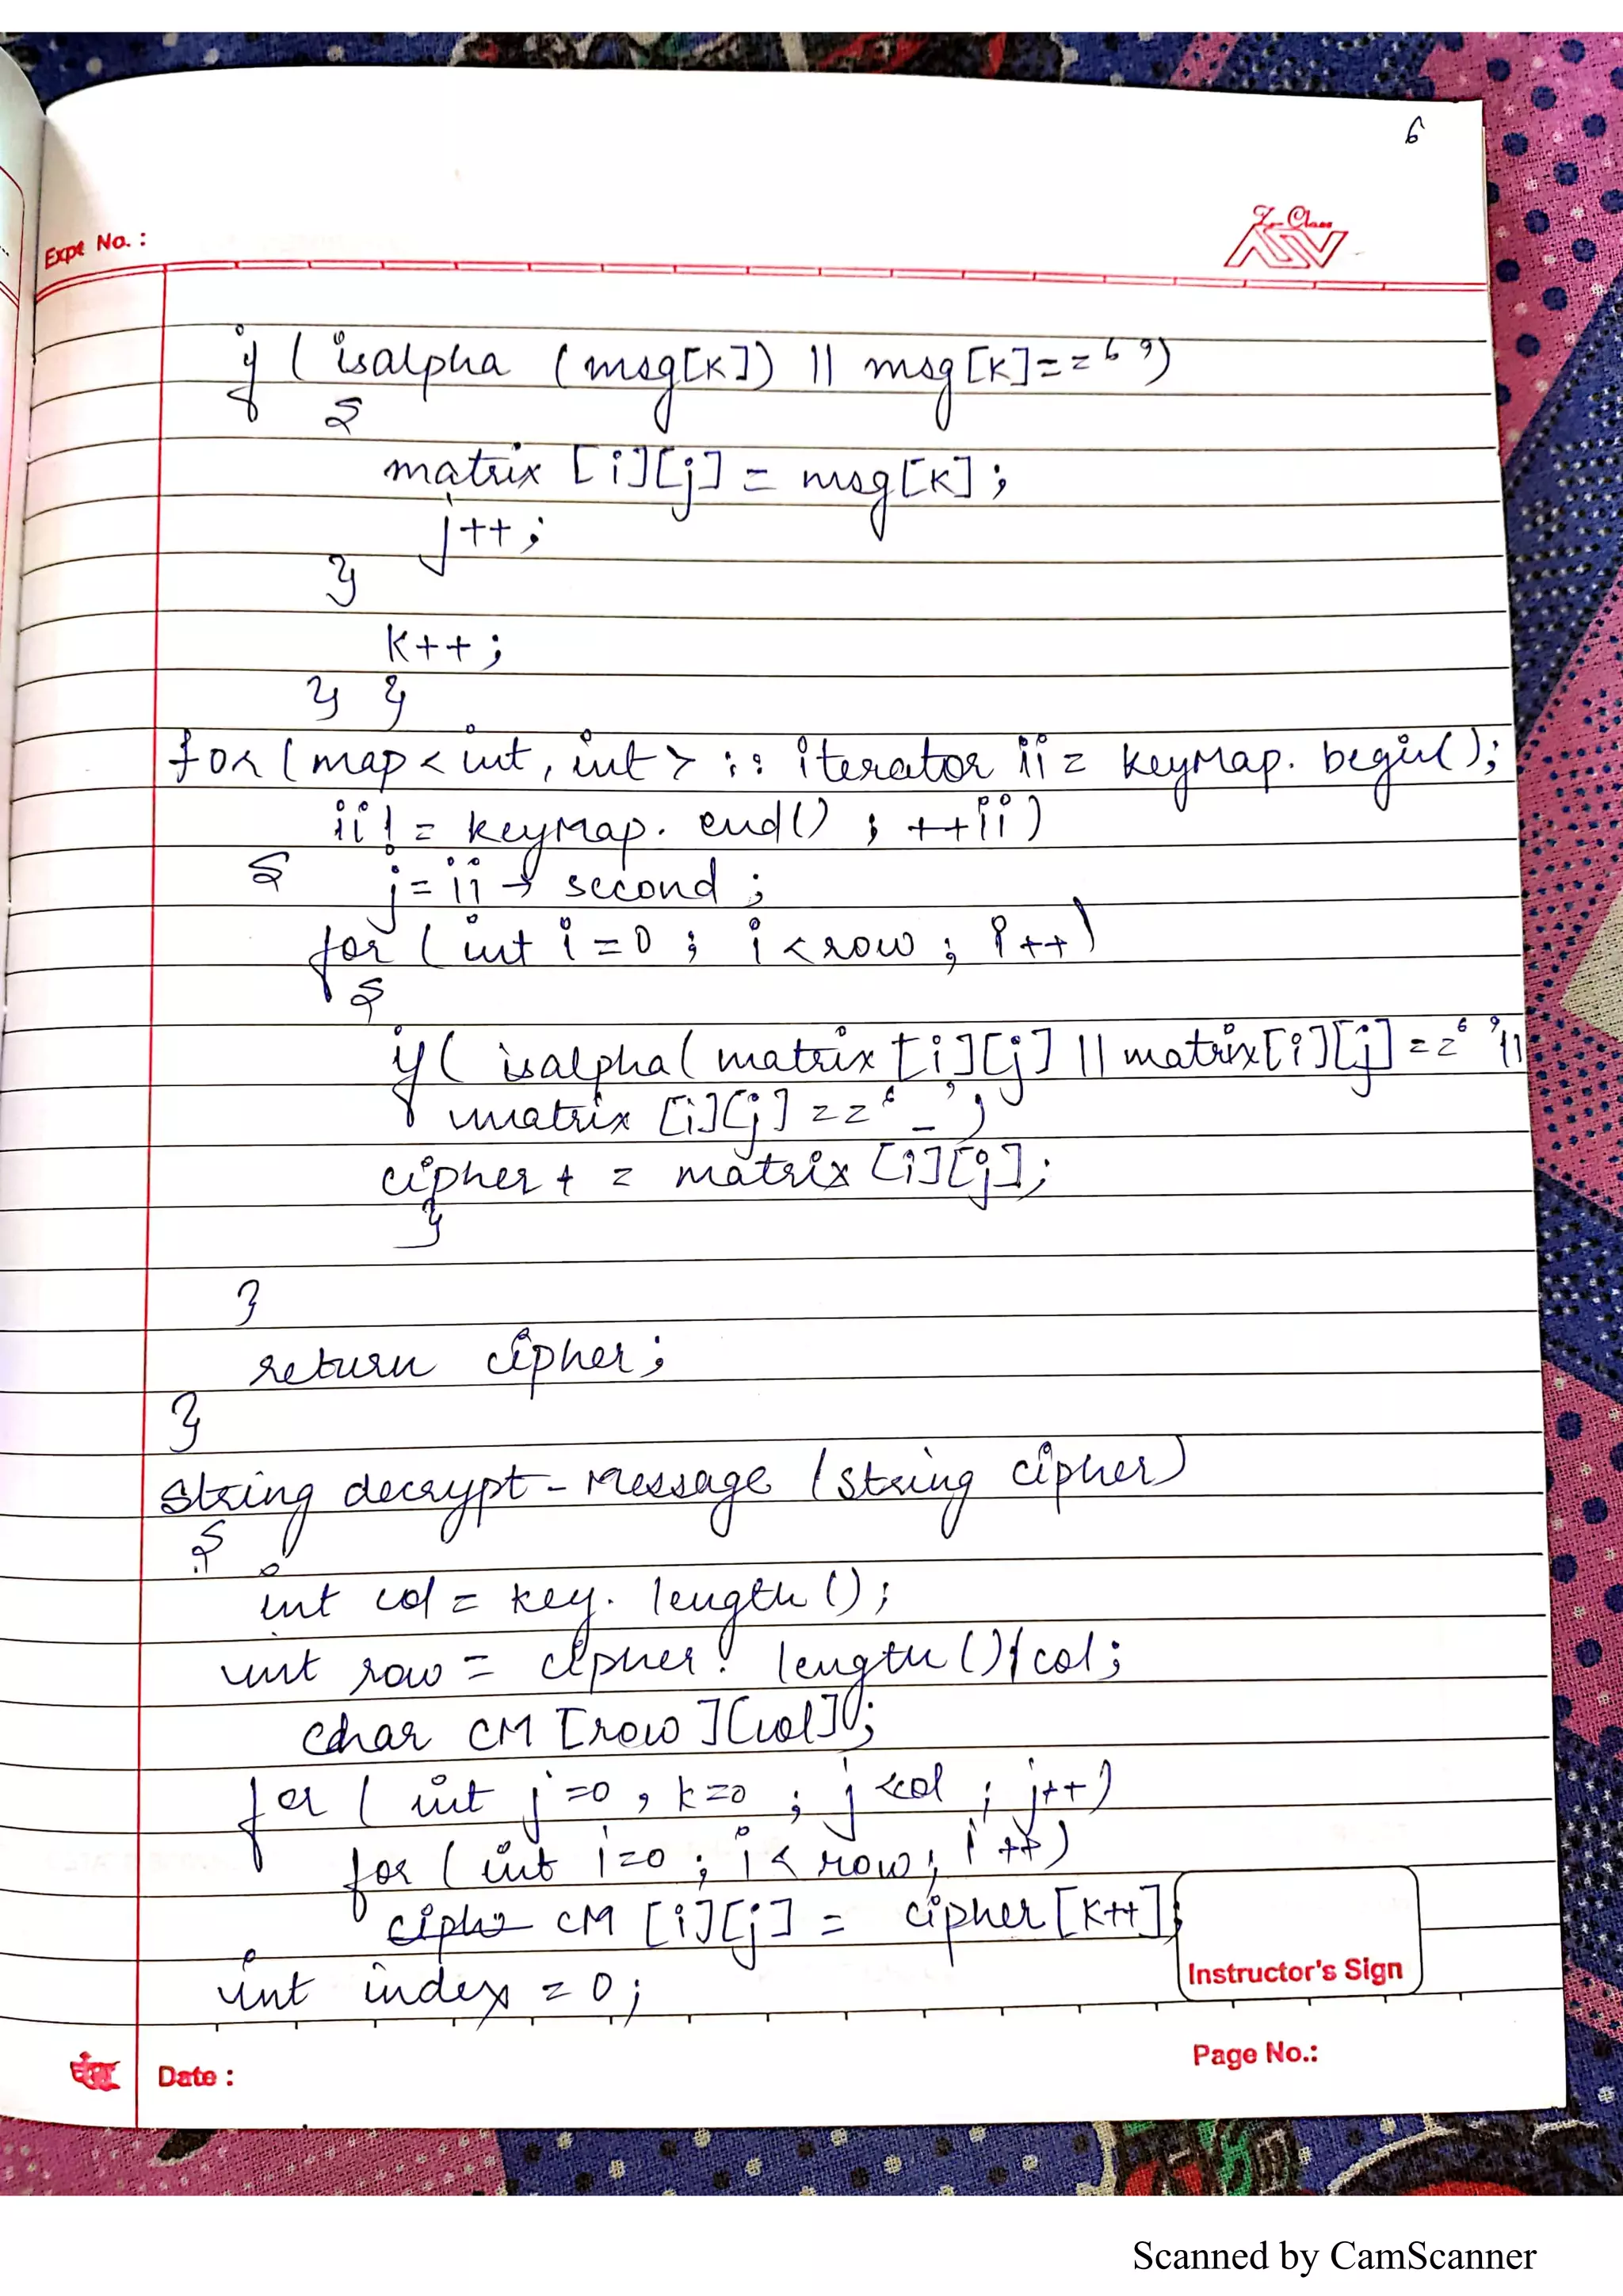 6
Expt No. :
if ( isalpha (msg[k]) || msg[k]==‘ ’)
{
matrix [i][j] = msg[k];
j++;
}
k++;
} }
for ( map < int, int > :: iterator ii = keyMap. begin();
ii != keyMap. end() ; ++ii )
{ j = ii → second ;
for ( int i = 0 ; i < row ; i++)
{
if ( isalpha( matrix [i][j] || matrix[i][j] ==‘ ’||
matrix [i][j] ==‘_’)
cipher + = matrix [i][j];
}
}
return cipher;
}
string decrypt - Message (string cipher)
{
int col = key. length ();
int row = cipher. length ()/col;
char CM [row][col];
for ( int j=0 , k=0 ; j<col ; j++)
for ( int i=0 ; i < row; i ++)
ciphe CM [i][j] = cipher[k++];
int index = 0;
Instructor's Sign
Date :
Page No.:
Scanned by CamScanner